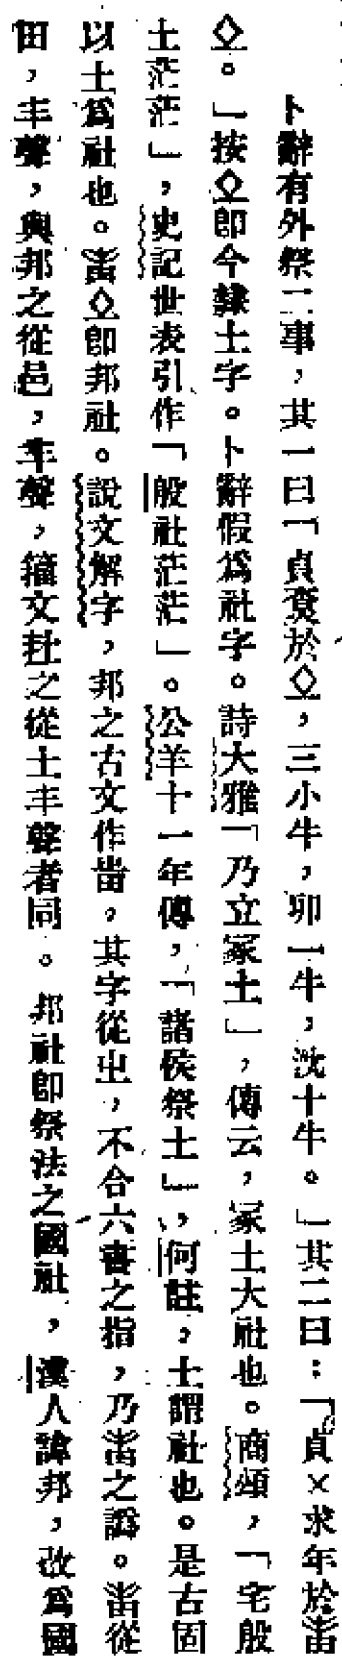 卜辭有外祭二事，其一曰「貞𤉲於◇，三小牛，卯一牛，沈十牛。」其二曰：「貞×求年於𤲰
◇。」按◇即今隸土字。卜辭假爲社字。詩大雅「乃立冢土」，傳云，冢土大社也。商頌，「宅殷
土茫茫」，史記世表引作「殷社茫茫」。公羊十一年傳，「諸侯祭土」，何註，土謂社也。是古固
以土爲社也。𤲰◇即邦社。說文解字，邦之古文作𤰫，其字從㞢，不合六書之指，乃𤲰之譌。𤲰從
田，丰聲，與邦之從邑，丰聲，籀文𡉚之從土丰聲者同。邦社即祭法之國社，漢人諱邦，改爲國